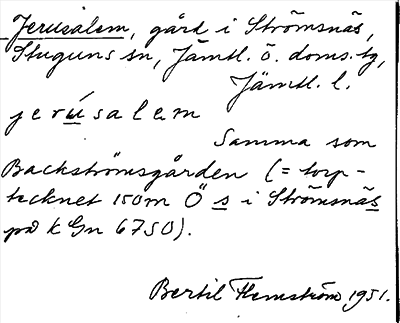 Jerusalem, gård i Strömsnäs,
Stuguns sn, Jämtl. ö. doms. tg,
Jämtl. l.
jerúsalem
Samma som
Backströmsgården (= torp-
tecknet 150 m Ö s i Strömsnäs
på k Gn 6750).
Bertil Flemström 1951.